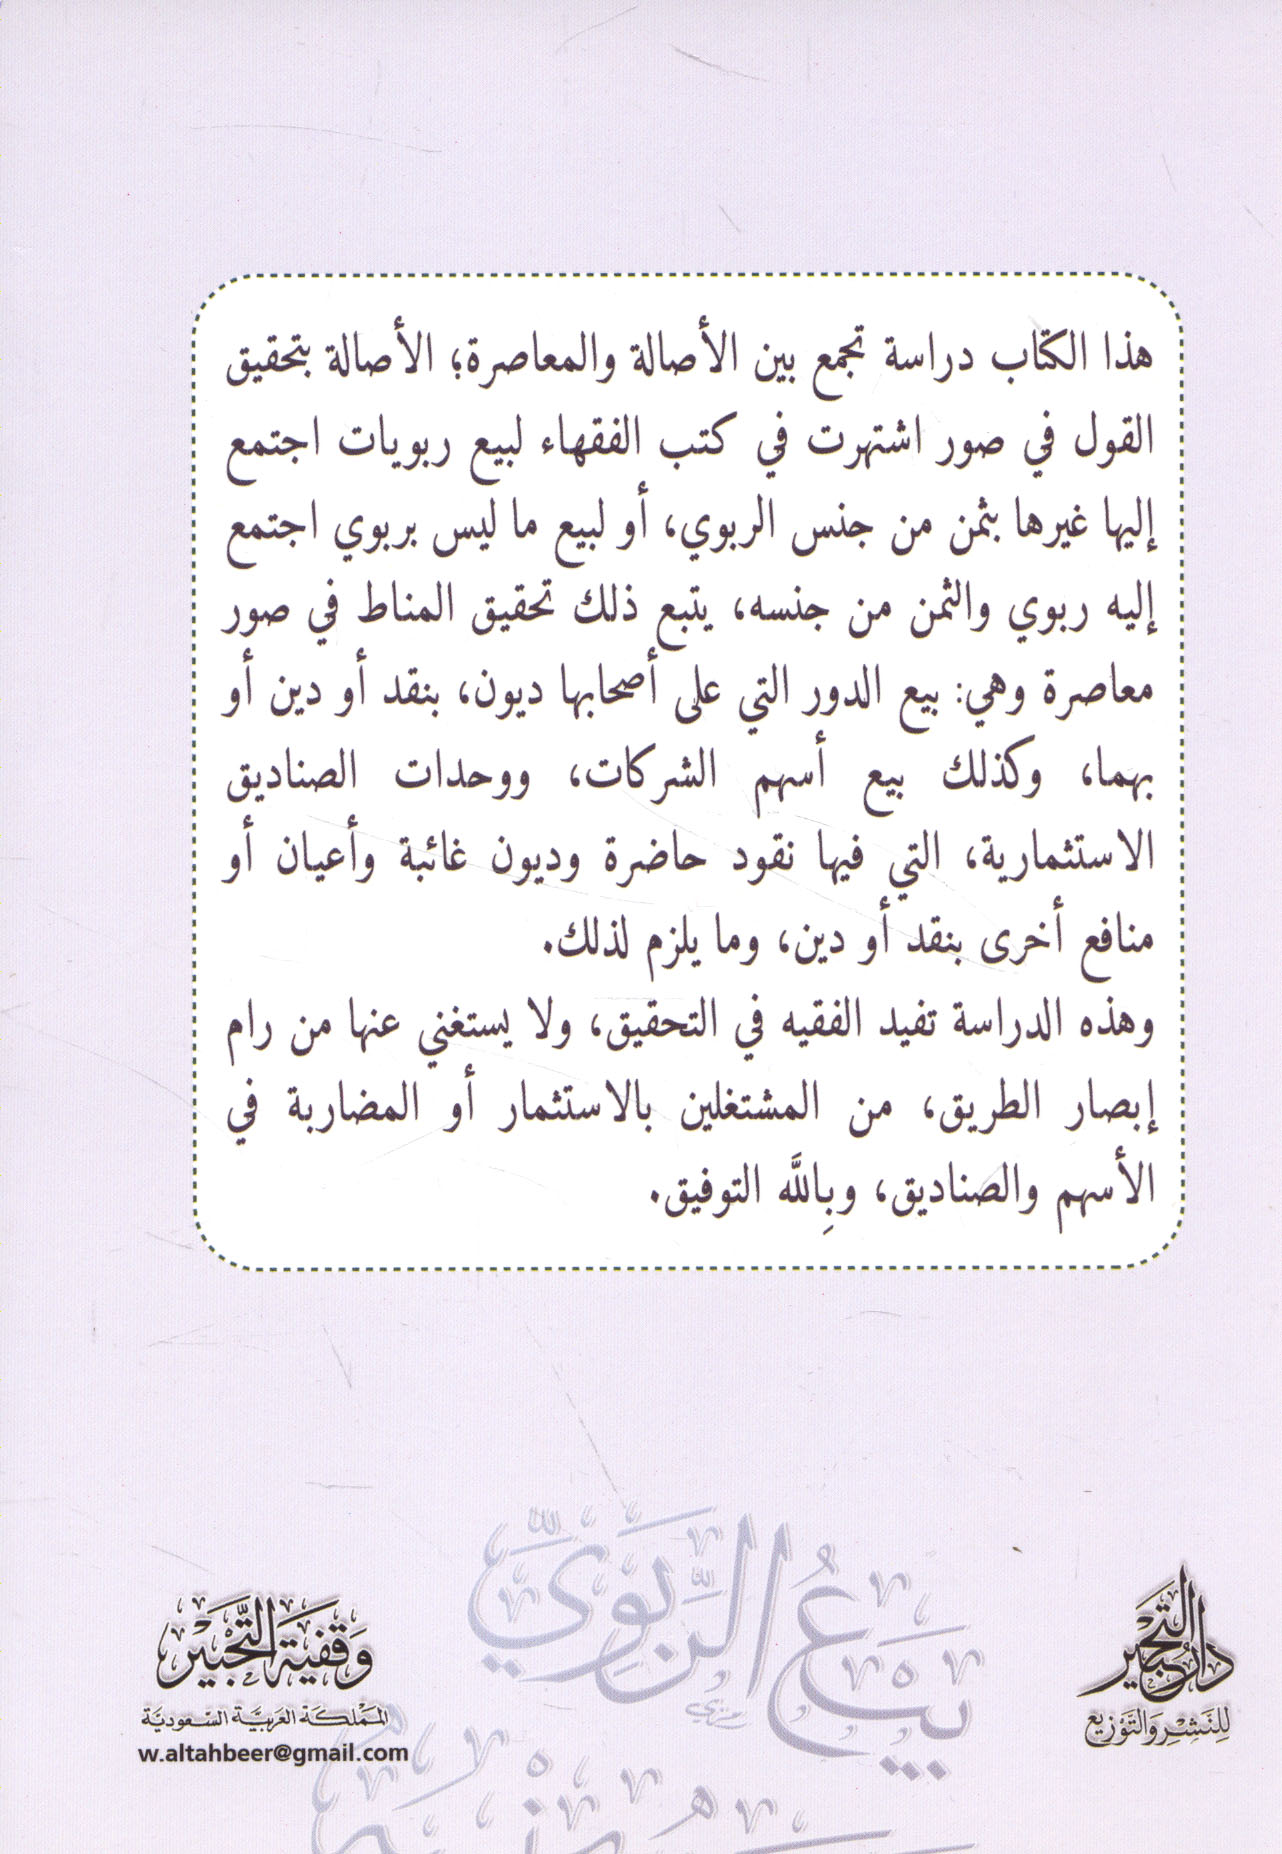 هذا الكتاب دراسة تجمع بين الأصالة والمعاصرة؛ الأصالة بتحقيق
القول في صور اشتهرت في كتب الفقهاء لبيع ربويات اجتمع
إليها غيرها بثمن من جنس الربوي، أو لبيع ما ليس بربوي اجتمع
إليه ربوي والثمن من جنسه، يتبع ذلك تحقيق المناط في صور
معاصرة وهي: بيع الدور التي على أصحابها ديون، بنقد أو دين أو
بهما، وكذلك بيع أسهم الشركات، ووحدات الصناديق
الاستثمارية، التي فيها نقود حاضرة وديون غائبة وأعيان أو
منافع أخرى بنقد أو دين، وما يلزم لذلك.
وهذه الدراسة تفيد الفقيه في التحقيق، ولا يستغني عنها من رام
إبصار الطريق، من المشتغلين بالاستثمار أو المضاربة في
الأسهم والصناديق، وبِاللَّه التوفيق.
بَيْعُ الرِّبَوِيِّ
دار التحبير
للنشر والتوزيع
وَقفية التَّحْبِيْر
المملكة العربية السعودية
w.altahbeer@gmail.com